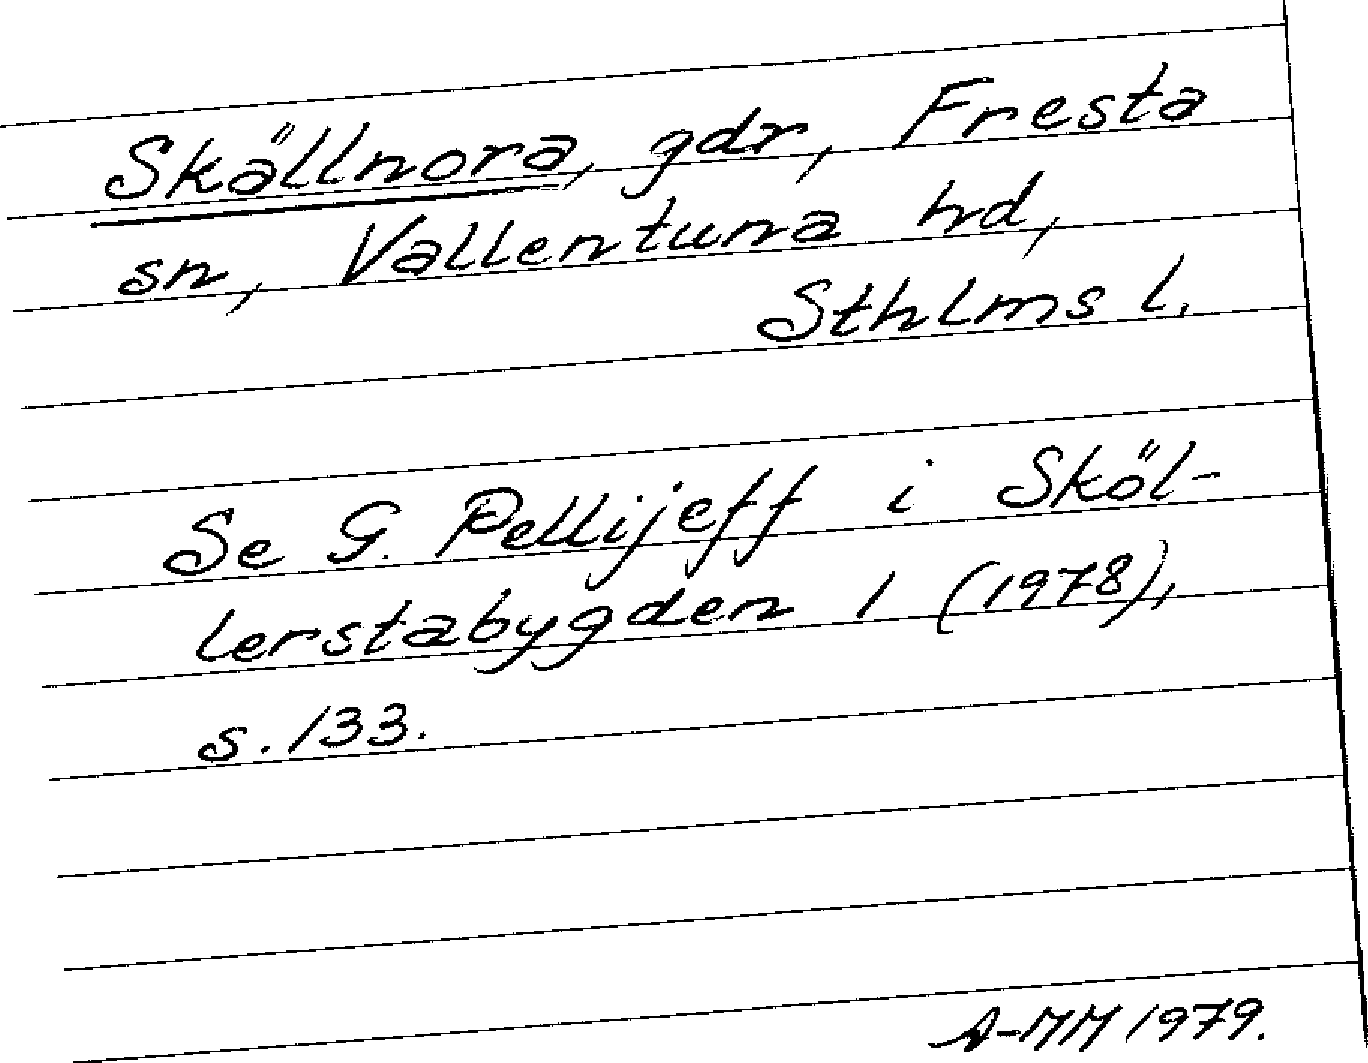 Skällnora, gdr, Fresta
sn, Vallentuna hd,
Sthlms l.
Se G. Pellijeff i Sköl-
lerstabygden 1 (1978),
s. 133.
A-MM 1979.